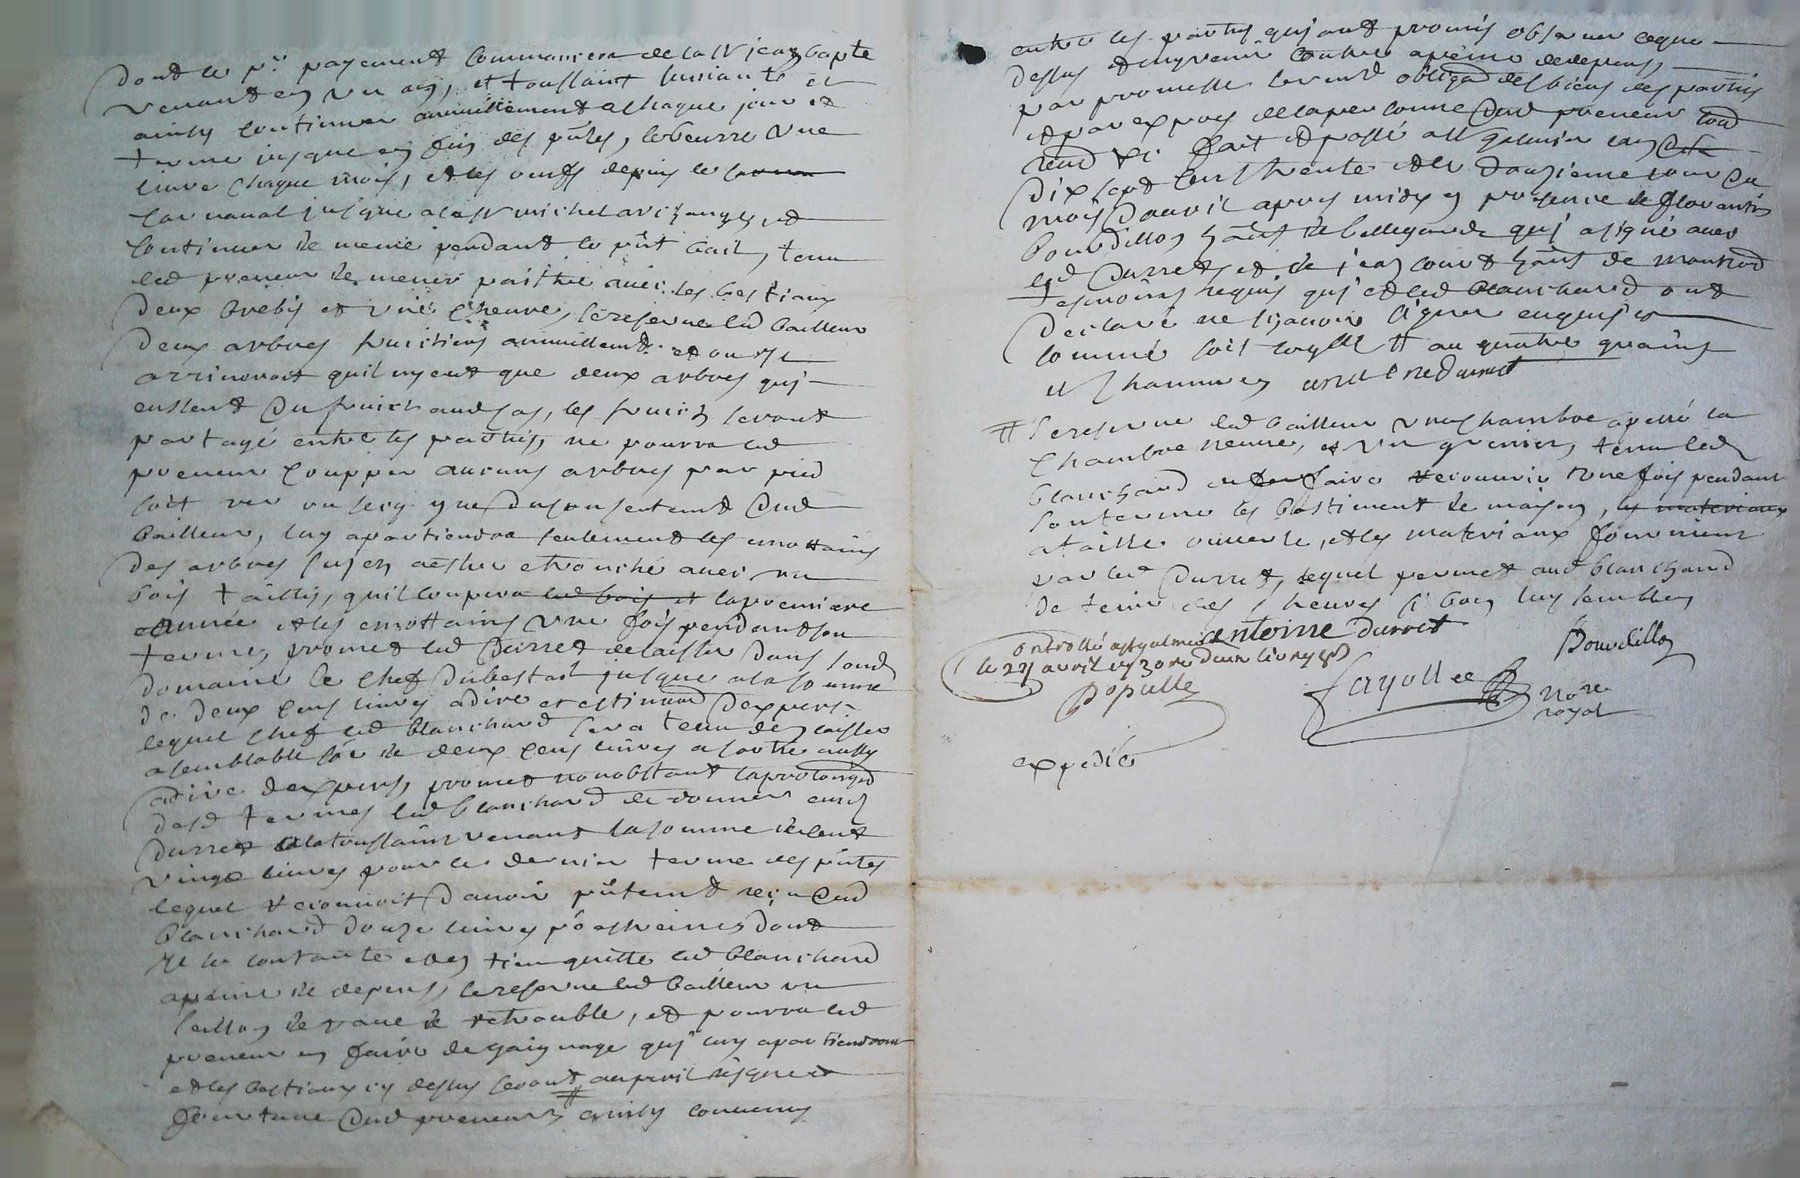 dont le pr payement commancera de la St jean bapte
venant en un an, et toussaint suivante et
ainsy continuer annuellement a chaque jour et
terme jusque en fin des pntes, le beurre une
livre chaque mois, et les oeufs depuis le
carnaval jusque a la St michel archange, et
continuer de meme pendant le pnt bail, tenu
led preneur de mener paitre avec les bestiaux
deux brebis et une chevre, se reserve led bailleur
deux arbres fruitiers annuellemt et ou il
arriveroit quil nyeut que deux arbres qui
eussent du fruict aud cas, les fruicts seront
partagé entre les parties, ne pourra led
preneur coupper aucuns arbres par pied
soit ver ou secq que du consentemt dud
bailleur, luy apartiendra seulement les emottains
des arbres sujen a estre etronché avec un
bois taillis, quil coupera led bois et la premiere
année et les emottains une fois pendant son
terme, promet led Durret delaisser dans sond
domaine le chef du bestail jusque a la somme
de deux cens livres a dire et estimaon dexpers
lequel chef led blanchard sera tenu de laisser
a semblable so͠e de deux cens livres a sortie aussy
a dire dexpers, promet nonobstant la prolongaon
desd termes led blanchard de donner aud
Durret a la toussaint venant la somme de cent
vingt livres pour le dernier terme des pntes
lequel reconnoit d'avoir pntemt reçu dud
blanchard douze livres po estreines dont
il se contante et en tien quitte led blanchard
a peine de depens, se reserve led bailleur un
seillon de rave de retrouble, et pourra led
preneur en faire de gaignage qui luy apartiendront
et les bestiaux cy dessus seront au peril risque et
fourtune dud preneur # ainsy convenu
entre les parties qui ont promis observer ce que
dessus et ny venir contre a peine de depens,
par promesse serment obligaon des biens des parties
et par expres de la personne dud preneur soud
rend &c fait et passé a St Galmier lan
dix sept cens trente et le douzieme jour du
mois davril apres midy en presence de florantin
bourdillon hant de bellegarde qui a signé avec
led Durret, et de jean court hant de montrond
tesmoins requis qui et led blanchard ont
declaré ne sçavoir signer enquis et
sommé soit # au quatre grains
et chammen
# se reserve led bailleur une chambre apellé la
chambre neuve, et un grenier, tenu led
blanchard de faire recouvrir une fois pendant
son terme les bastiment de maison, les materiaux
a taille ouverte, et les materiaux fournient
par led Durret, lequel permet aud blanchard
de tenir des chevres si bon luy semble
antoine durret
Bourdillon
controllé a st galmier
le 22 avril 1730 recu deux livres
Populle
fayolle
Nore
royal
expedié